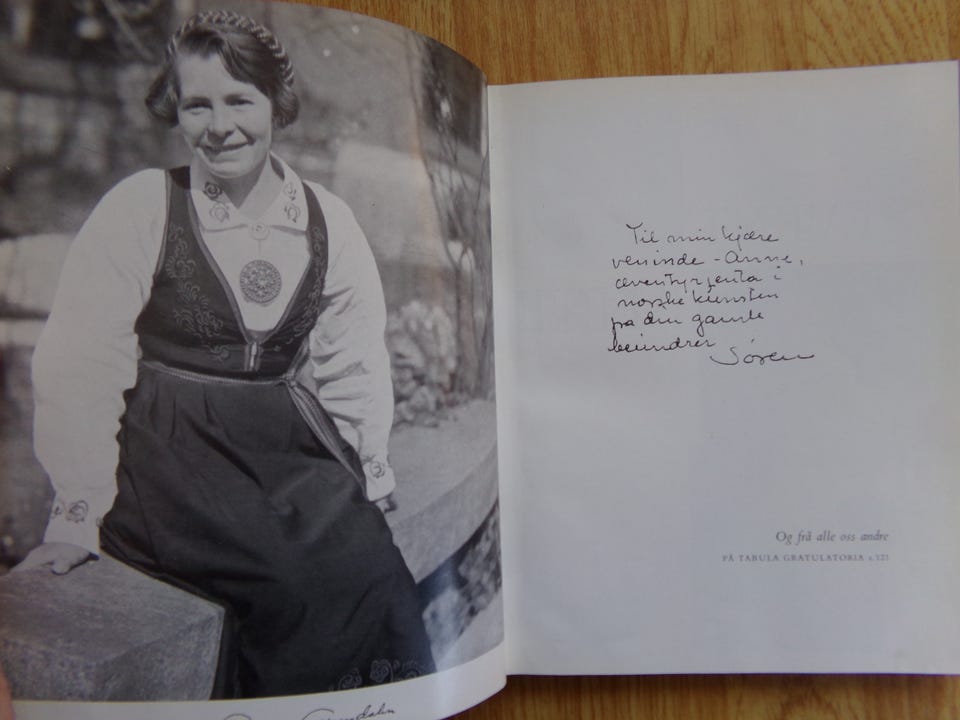 Til min kjære
veninde - Anne,
eventyrjenta i
norske kunsten
fra din gamle
beundrer
Søren
Og frå alle oss andre
PÅ TABULA GRATULATORIA s. 125